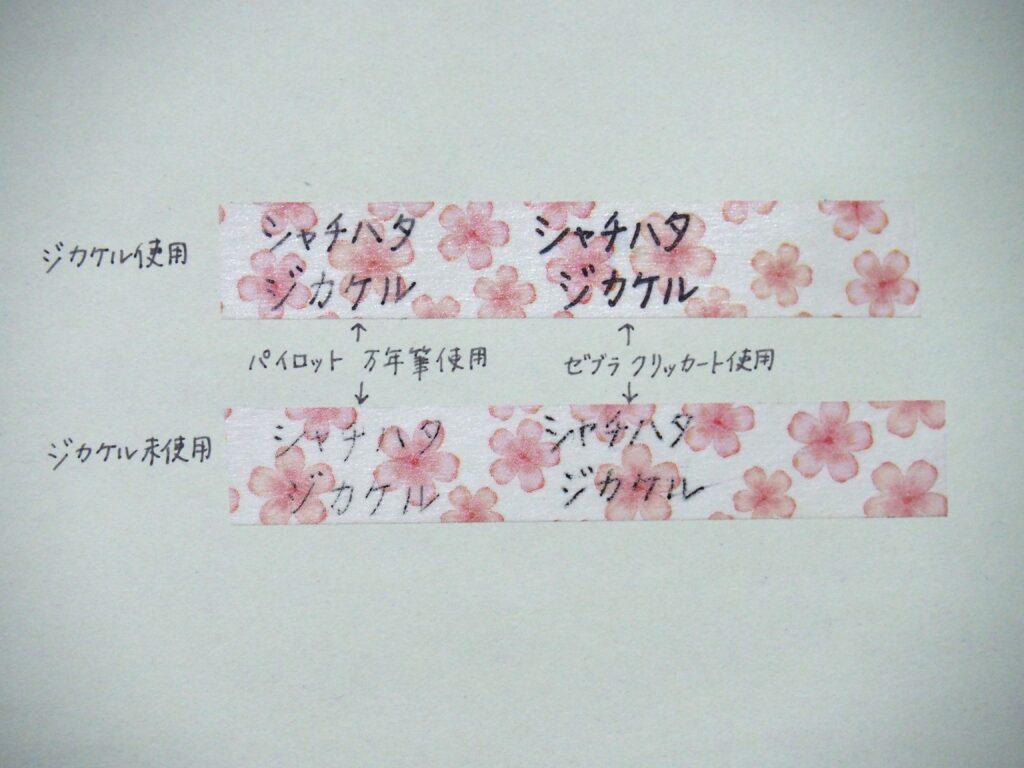 シャチハタ
ジカケル
シャチハタ
ジカケル
ジカケル使用
↑
↑
パイロット 万年筆使用
ゼブラ クリッカート使用
↓
↓
ジカケル未使用
シャチハタ
ジカケル
シャチハタ
ジカケル